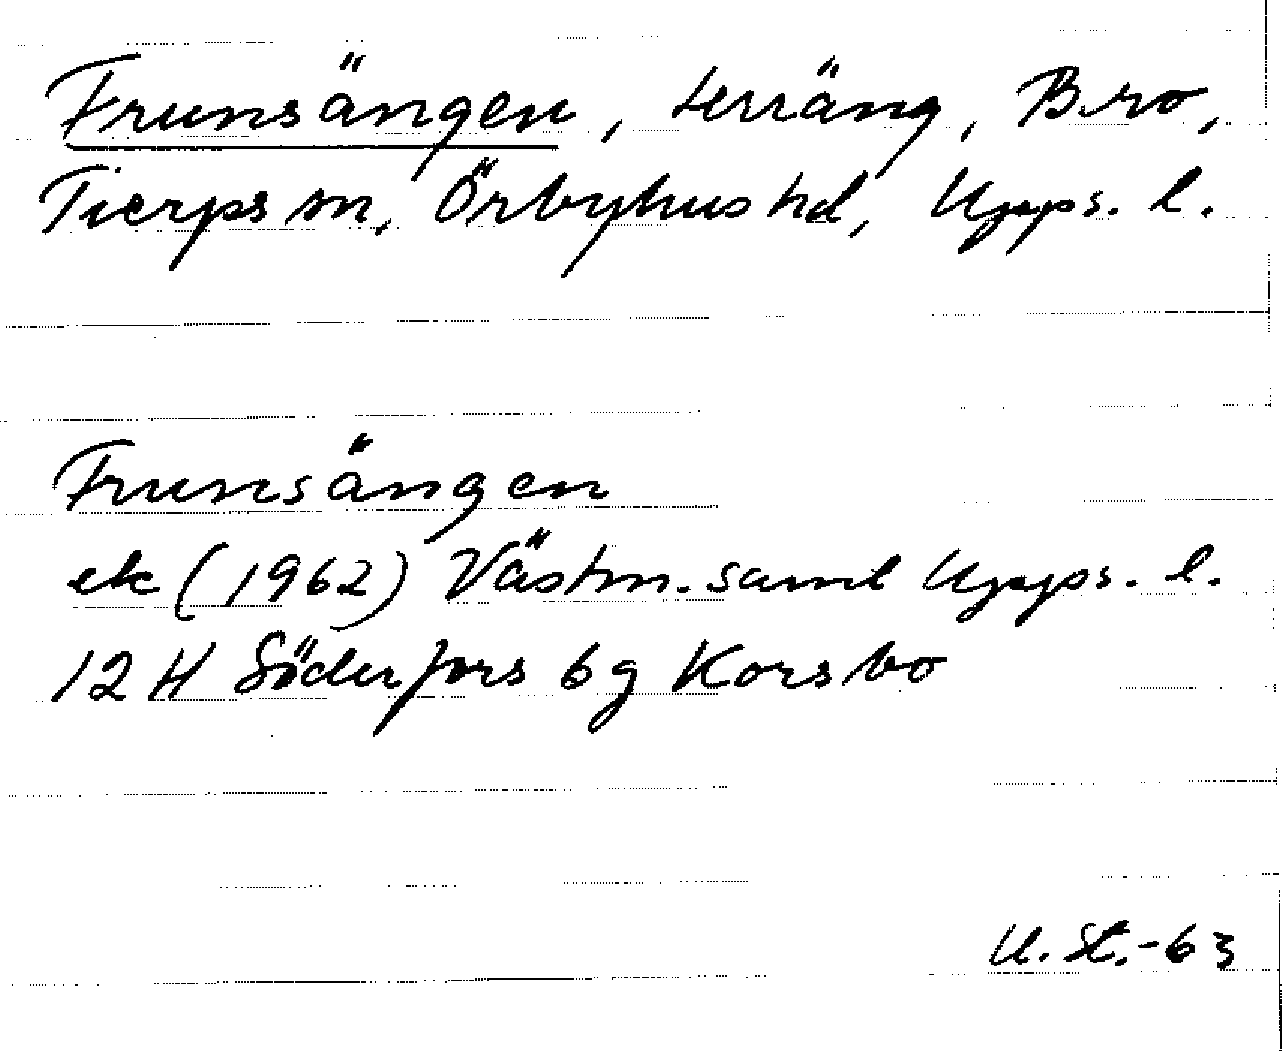 Frunsängen, terräng, Bro,
Tierps sn, Örbyhus hd, Upps. l.
Frunsängen
ek (1962) Västm. saml Upps. l.
12 H Söderfors 6g Korsbo
U. St.-63